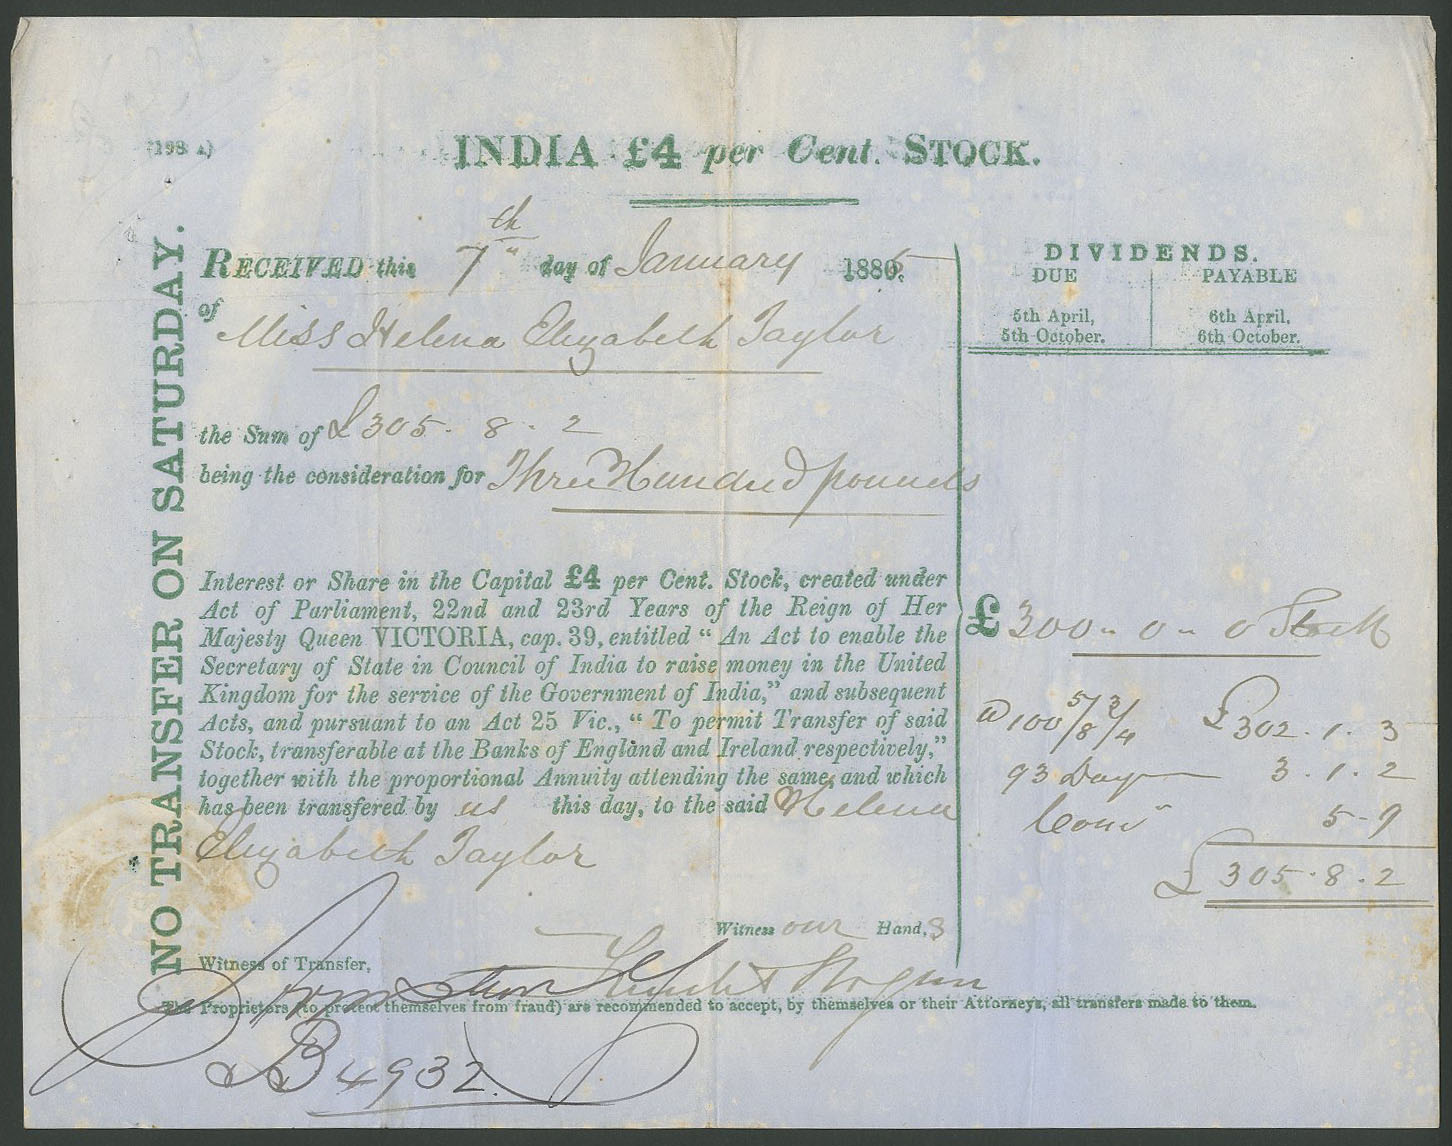 INDIA £4 per Cent. STOCK.
NO TRANSFER ON SATURDAY.
RECEIVED this 7th day of January 1885
of Miss Helena Elizabeth Taylor
the Sum of £305 - 8 - 2
being the consideration for Three Hundred pounds
Interest or Share in the Capital £4 per Cent. Stock, created under
Act of Parliament, 22nd and 23rd Years of the Reign of Her
Majesty Queen VICTORIA, cap. 39, entitled “ An Act to enable the
Secretary of State in Council of India to raise money in the United
Kingdom for the service of the Government of India,” and subsequent
Acts, and pursuant to an Act 25 Vic., “ To permit Transfer of said
Stock, transferable at the Banks of England and Ireland respectively,”
together with the proportional Annuity attending the same, and which
has been transfered by us this day, to the said Helena
Elizabeth Taylor
Witness our Hands
Witness of Transfer,
The Proprietors (to protect themselves from fraud) are recommended to accept, by themselves or their Attorneys, all transfers made to them.
B 4932.
DIVIDENDS.
DUE PAYABLE
5th April, 6th April,
5th October. 6th October.
£ 300 " 0 " 0 Stock
@ 100 5/8 3/4 £302 . 1 . 3
93 Days 3 . 1 . 2
Com 5 - 9
£ 305 . 8 . 2